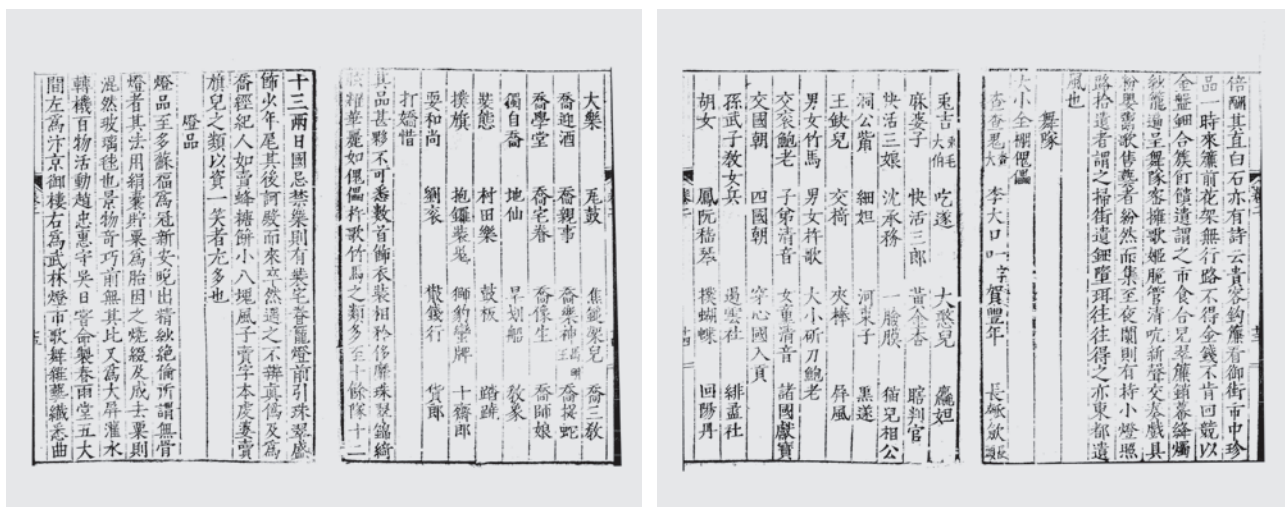 倍酬其直白石亦有詩云貴客鈎簾看御街市中珍
品一時來簾前花架無行路不得金錢不肯回競以
金盤鈿合簇飣饋遺謂之市食合兒翠簾銷幕絳燭
紗籠遍呈舞隊密擁歌姬脆管清吭新聲交奏戲具
粉嬰鬻歌售藝者紛然而集至夜闌則有持小燈照
路拾遺者謂之掃街遺鈿墮珥往往得之亦東都遺
風也
舞隊
大小全棚傀儡
查查鬼查大 李大口一字 賀豐年 長瓠歛長頭
兎吉兎毛大伯 吃遂 大憨兒 麄妲
麻婆子 快活三郎 黃金杏 瞎判官
快活三娘 沈承務 一臉膜 猫兒相公
洞公觜 細妲 河東子 黑遂
王鈇兒 交椅 夾棒 屏風
男女竹馬 男女杵歌 大小斫刀鮑老
交衮鮑老 子弟清音 女童清音 諸國獻寶
四國朝 穿心國入貢
孫武子教女兵 遏雲社 緋社
胡女 鳳阮嵇琴 撲蝴蝶 回陽丹
大樂 瓦鼓 焦鎚架兒 喬三教
喬迎酒 喬親事 喬樂神馬明王 喬捉蛇
喬學堂 喬宅眷 喬像生 喬師娘
獨自喬 地仙 旱划船 教象
裝態 村田樂 鼓板 踏蹺
撲旗 抱鑼裝鬼 獅豹蠻牌 十齋郎
耍和尚 劉衮 散錢行 貨郎
打嬌惜
其品甚夥不可悉數首飾衣裝相矜侈靡珠翠錦綺
眩耀華麗如傀儡杵歌竹馬之類多至十餘隊十二
十三兩日國忌禁樂則有裝宅眷籠燈前引珠翠盛
飾少年尾其後訶殿而來卒然遇之不辨真僞及爲
喬經紀人如賣蜂糖餅小八塊風子賣字本虔婆賣
旗兒之類以資一笑者尤多也
燈品
燈品至多蘇福爲冠新安晚出精妙絕倫所謂無骨
燈者其法用絹囊貯粟爲胎因之燒綴及成去粟則
混然玻璃毬也景物奇巧前無其比又爲大屏灌水
轉機百物活動趙忠惠守吳日嘗命製春雨堂五大
間左爲汴京御樓右爲武林燈市歌舞雜藝纖悉曲